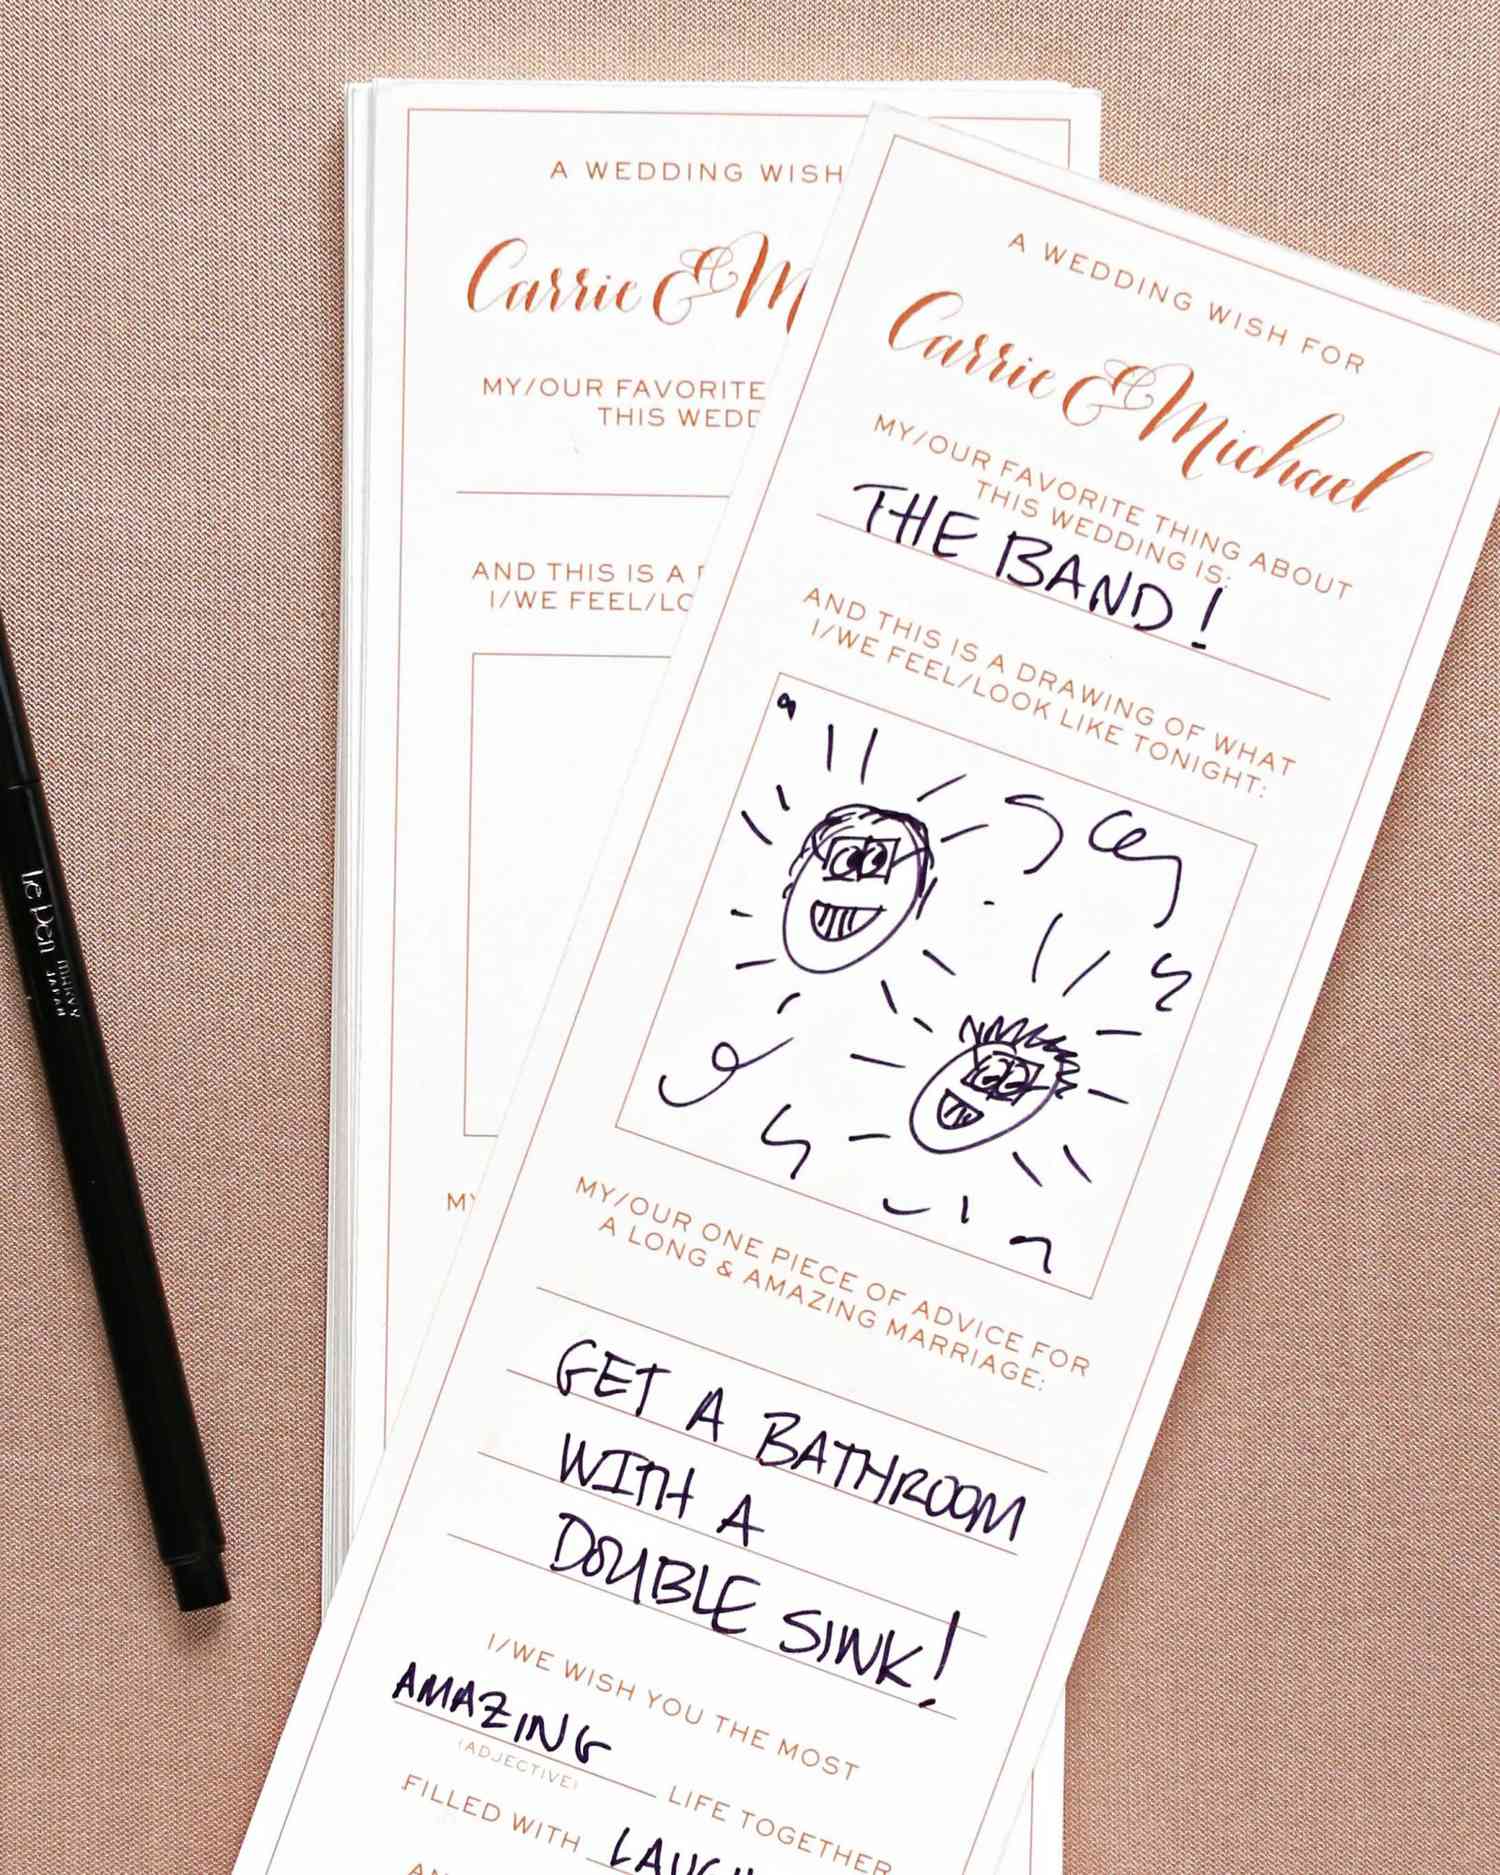 A WEDDING WISH
Carrie & M
MY/OUR FAVORITE
THIS WEDD
AND THIS IS A
I/WE FEEL/LO
MY
A WEDDING WISH FOR
Carrie & Michael
MY/OUR FAVORITE THING ABOUT
THIS WEDDING IS:
THE BAND!
AND THIS IS A DRAWING OF WHAT
I/WE FEEL/LOOK LIKE TONIGHT:
MY/OUR ONE PIECE OF ADVICE FOR
A LONG & AMAZING MARRIAGE:
GET A BATHROOM
WITH A
DOUBLE SINK!
I/WE WISH YOU THE MOST
AMAZING
(ADJECTIVE)
LIFE TOGETHER
FILLED WITH LAUGH
AN
Le Pen
MARVY
JAPAN